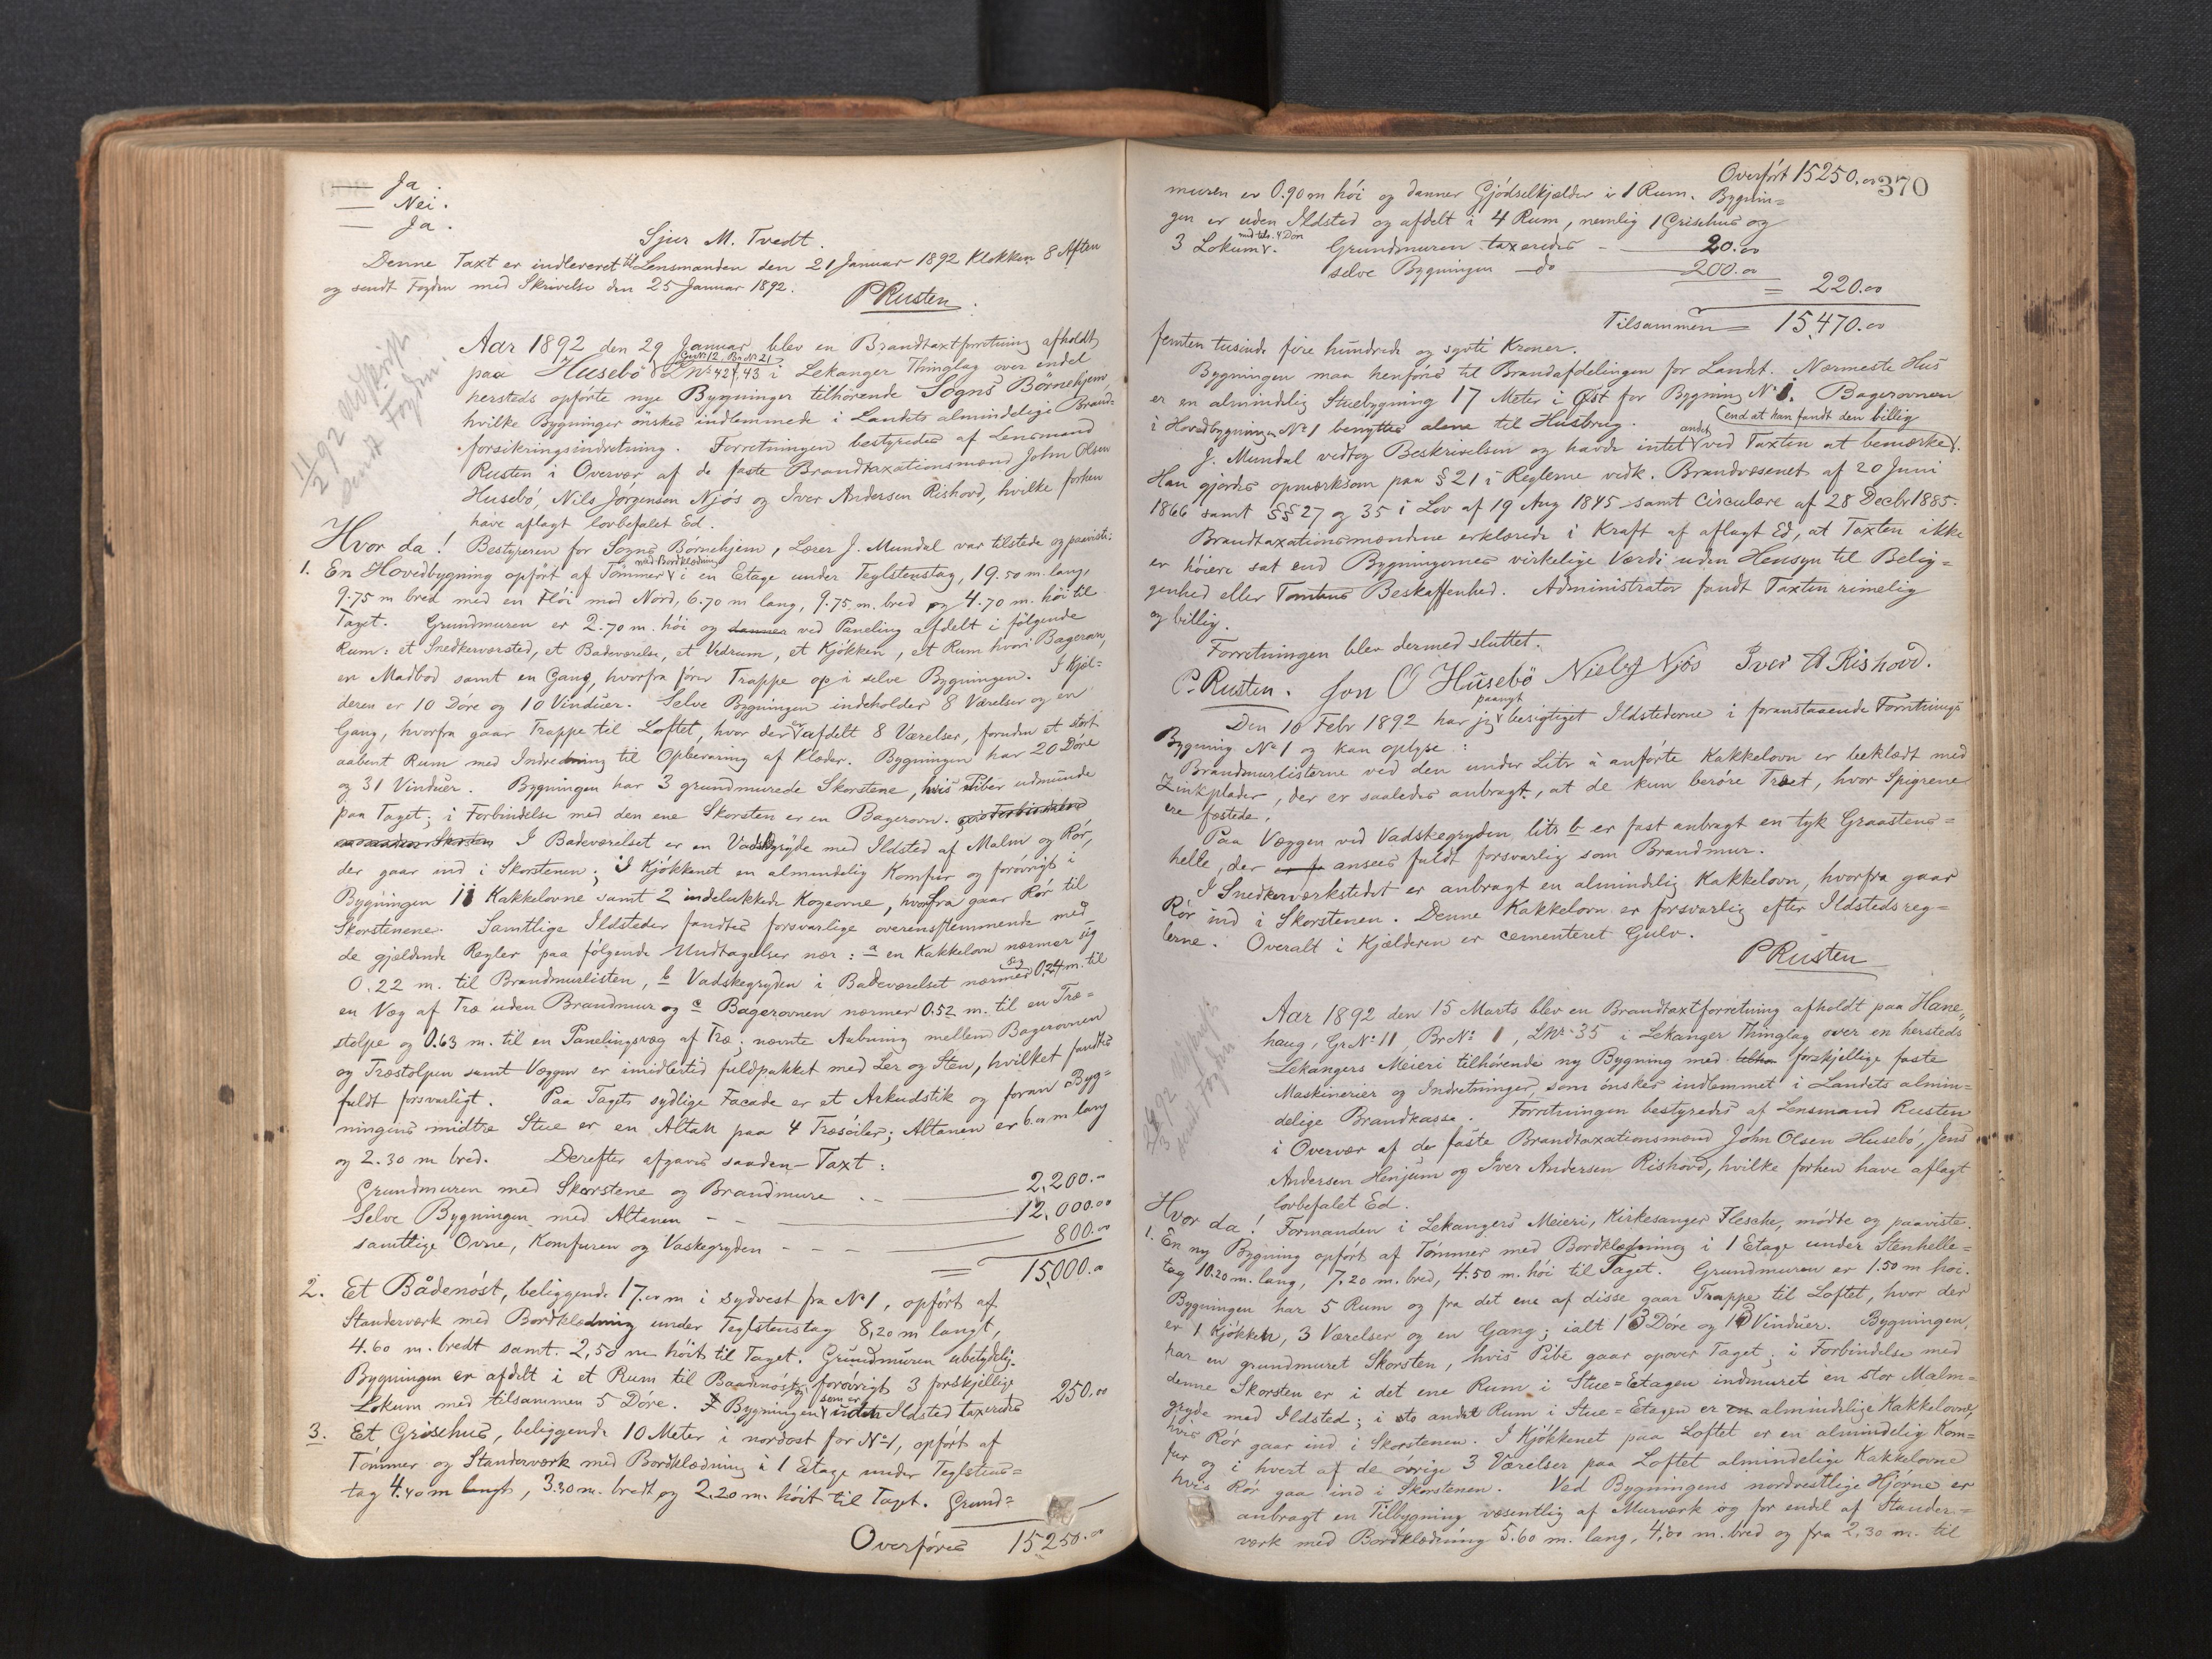 — Ja.
— Nei.
— Ja.
Sjur M. Tvedt.
Denne Taxt er indleveret til Lensmanden den 21 Januar 1892 Klokken 8 Aften
og sendt Fogden med Skrivelse den 25 Januar 1892.
P Rusten.
11/2 92 Udskrift
sendt Fogden.
Aar 1892 den 29 Januar blev en Brandtaxtforretning afholdt
paa Husebö GrNo 12 BrNo 21 LNo 42 f, 43 i Lekanger Thinglag over endel
hersteds opförte nye Bygninger tilhörende Sogns Börnehjem,
hvilke Bygninger önskes indlemmede i Landets almindelige Brand-
forsikringsindretning. Forretningen bestyredes af Lensmand
Rusten i Overvær af de faste Brandtaxationsmænd John Olsen
Husebö, Nils Jörgensen Njös og Iver Andersen Rishovd, hvilke forhen
have aflagt lovbefalet Ed.
Hvor da! Bestyreren for Sogns Börnehjem, Lærer J. Mundal var tilstede og paaviste:
1. En Hovedbygning opfört af Tömmer med Bordklædning i en Etage under Teglstenstag, 19.50 m. lang,
9.75 m bred med en Flöi mod Nord, 6.70 m lang, 9.75 m. bred og 4.70 m. höi til
Taget. Grundmuren er 2.70 m. höi og danner ved Paneling afdelt i fölgende
Rum: et Snedkerværsted, et Badeværelse, et Vedrum, et Kjökken, et Rum hvori Bagerovn,
en Madbod samt en Gang, hvorfra förer Trappe op i selve Bygningen. I Kjæl=
deren er 10 Döre og 10 Vinduer. Selve Bygningen indeholder 8 Værelser og en
Gang, hvorfra gaar Trappe til Loftet, hvor der er afdelt 8 Værelser, foruden et stört
aabent Rum med Indredning til Opbevaring af Klæder. Bygningen har 20 Döre
og 31 Vinduer. Bygningen har 3 grundmurede Skorstene, hvis Piber udmunde
paa Taget; i Forbindelse med den ene Skorsten er en Bagerovn.
I Badeværelset er en Vadskegryde med Ildsted af Malm og Rör,
der gaar ind i Skorstenen; I Kjökkenet en almindelig Komfur og forövrigt i
Bygningen 11 Kakkelovne samt 2 indelukkede Kogeovne, hvorfra gaar Rör til
Skorstenene. Samtlige Ildsteder fandtes forsvarlige overensstemmende med
de gjældende Regler paa fölgende Undtagelser nær: a en Kakkelovn nærmer sig
0.22 m. til Brandmurlisten, b Vadskegryden i Badeværelset nærmer sig 0.24 m. til
en Væg af Træ uden Brandmur og c Bagerovnen nærmer 0.52 m. til en Træ=
stolpe og 0.63 m. til en Panelingsvæg af Træ; nævnte Aabning mellem Bagerovnen
og Træstolpen samt Væggen er imidlertid fuldpakket med Ler og Sten, hvilket fandtes
fuldt forsvarligt. Paa Tagets sydlige Facade er et Arkudstik og foran Byg=
ningens midtre Stue er en Altan paa 4 Træsöiler; Altanen er 6.00 m lang
og 2.30 m bred. Derefter afgaves saaden Taxt:
Grundmuren med Skorstene og Brandmure - - 2,200.-
Selve Bygningen med Altanen - - 12,000.00
samtlige Ovne, Komfuren og Vaskegryden - - - 800.00
= 15,000.00
2. Et Bådenöst, beliggende 17.00 m i sydvest fra No 1, opfört af
Standerværk med Bordklædning under Teglstenstag 8,20 m langt,
4.60 m. bredt samt. 2,50 m höit til Taget. Grundmuren ubetydelig.
Bygningen er afdelt i et Rum til Baadenöst og forövrigt 3 forskjellige
Lokum med tilsammen 5 Döre. Bygningen som er uden Ildsted taxeredes 250.00
3. Et Grisehus, beliggende 10 Meter i nordost for No 1, opfört af
Tömmer og Standerværk med Bordklædning i 1 Etage under Teglstens=
tag 4.40 m langt, 3.30 m. bredt og 2.20 m. höit til Taget. Grund=
Overföres 15250.00
370
Overfört 15250.00
muren er 0.90 m höi og danner Gjödselkjælder i 1 Rum. Bygnin=
gen er uden Ildsted og afdelt i 4 Rum, nemlig 1 Grisehus og
3 Lokum med tils. 4 Döre. Grundmuren taxeredes - 20.00
selve Bygningen do 200.00
= 220.00
Tilsammen = 15,470.00
femten tusinde fire hundrede og sytti Kroner.
Bygningen maa henföres til Brandafdelingen for Landet. Nærmeste Hus
er en almindelig Stuebygning 17 Meter i Öst for Bygning No 1. Bagerovnen
i Hovedbygningen No 1 benyttes alene til Husbrug.
J. Mundal vedtog Beskrivelsen og havde intet andet ved Taxten at bemærke end at han fandt den billig.
Han gjordes opmærksom paa § 21 i Reglerne vedk. Brandvæsenet af 20 Juni
1866 samt §§ 27 og 35 i Lov af 19 Aug 1845 samt Circulære af 28 Decbr 1885.
Brandtaxationsmændene erklærede i Kraft af aflagt Ed, at Taxten ikke
er höiere sat end Bygningernes virkelige Værdi uden Hensyn til Belig=
genhed eller Tomtens Beskaffenhed. Administrator fandt Taxten rimelig
og billig.
Forretningen blev dermed sluttet.
P. Rusten. Jon O Husebö Niels J Njös Iver A Rishovd.
Den 10 Febr 1892 har jeg paanyt besigtiget Ildstederne i foranstaaende Forretnings
Bygning No 1 og kan oplyse:
Brandmurlisterne ved den under Litr a anförte Kakkelovn er beklædt med
Zinkplader, der er saaledes anbragt, at de kun beröre Træet, hvor Spigrene
ere fæstede.
Paa Væggen ved Vadskegryden litr b er fast anbragt en tyk Graastens=
helle, der ansees fuldt forsvarlig som Brandmur.
I Snedkerværkstedet er anbragt en almindelig Kakkelovn, hvorfra gaar
Rör ind i Skorstenen. Denne Kakkelovn er forsvarlig efter Ildstedsreg=
lerne. Overalt i Kjælderen er cementeret Gulv.
P Rusten
92 Udskrift
sendt Fogden
Aar 1892 den 15 Marts blev en Brandtaxtforretning afholdt paa Hane=
haug, GrNo 11 BrNo 1, LNr. 35 i Lekanger Thinglag over en hersteds
Lekangers Meieri tilhörende ny Bygning med forskjellige faste
Maskinerier og Indretninger, som önskes indlemmet i Landets almin=
delige Brandkasse. Forretningen bestyredes af Lensmand Rusten
i Overvær af de faste Brandtaxationsmænd John Olsen Husebö, Jens
Andersen Henjum og Iver Andersen Rishovd, hvilke forhen have aflagt
lovbefalet Ed.
Hvor da! Formanden i Lekangers Meieri, Kirkesanger Flesche, mödte og paaviste.
1. En ny Bygning opfört af Tömmer med Bordklædning i 1 Etage under Stenhelle=
tag 10.20 m. lang, 7.20 m. bred, 4.50 m. höi til Taget. Grundmuren er 1.50 m höi.
Bygningen har 5 Rum og fra det ene af disse gaar Trappe til Loftet, hvor der
er 1 Kjökken, 3 Værelser og en Gang; ialt 13 Döre og 13 Vinduer. Bygningen,
har en grundmuret Skorsten, hvis Pibe gaar opover Taget; i Forbindelse med
denne Skorsten er i det ene Rum i Stue=Etagen indmuret en stor Malm=
gryde med Ildsted; i sto andet Rum i Stue=Etagen er en almindelige Kakkelovne,
hvis Rör gaar ind i Skorstenen. I Kjökkenet paa Loftet er en almindelig Kom=
fur og i hvert af de övrige 3 Værelser paa Loftet almindelige Kakkelovne
hvis Rör gaa ind i Skorstenen. Ved Bygningens nordvestlige Hjörne er
anbragt en Tilbygning væsentlig af Murværk og for endel af Stander=
værk med Bordklædning 5.60 m. lang, 4,00 m. bred og fra 2,30 m. til